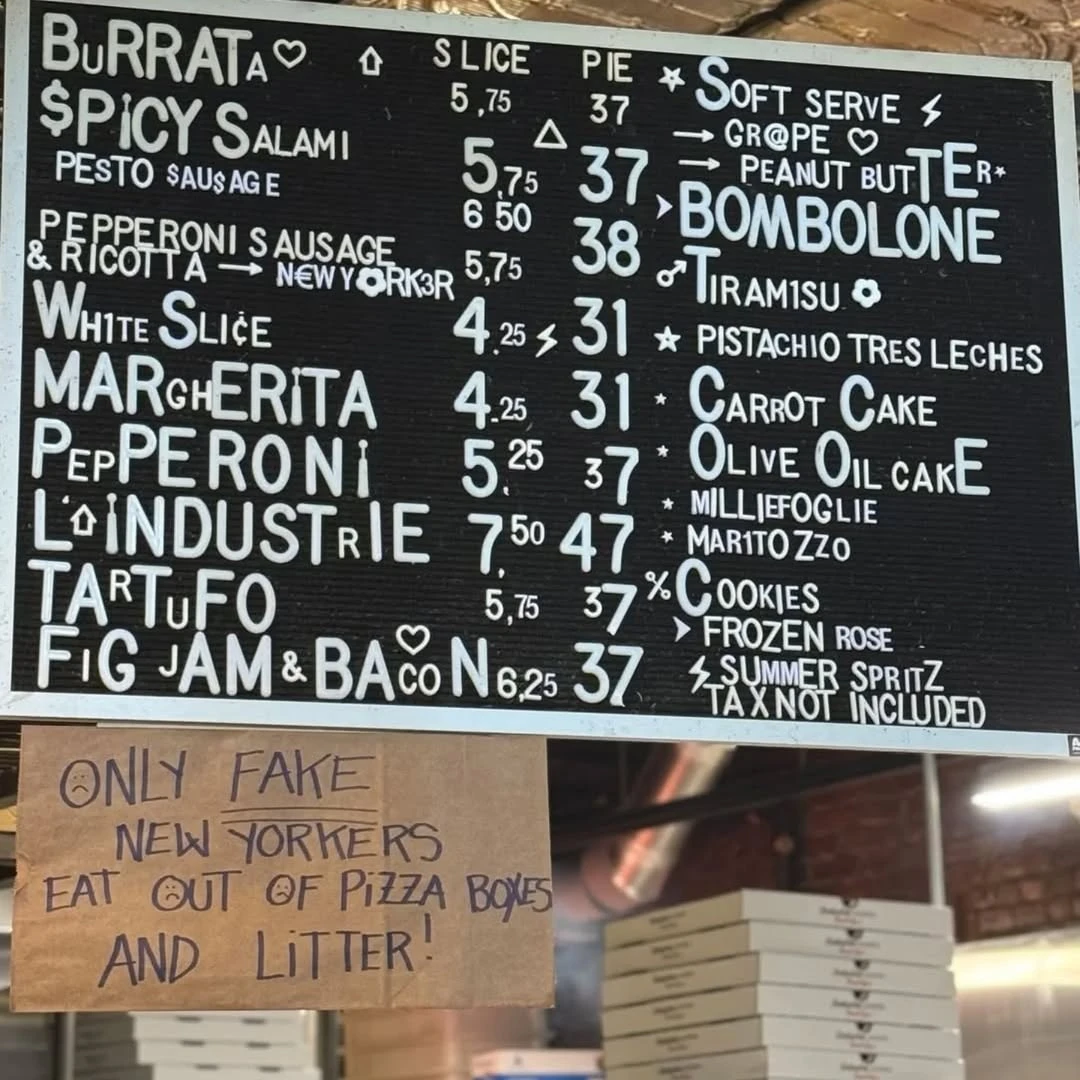 BuRRATA ♡ ⇧ SLICE PIE
5,75 37
$PiCY SALAMI △ 5,75 37
PESTO $AU$AGE 6 50
PEPPERONI SAUSAGE 38
& RICOTTA → N€WY✿RK3R 5,75
WH1TE SLI¢E 4.25 ⚡ 31
MARGHERiTA 4.25 31
PEPPERONi 5.25 37
L'⇧iNDUSTRIE 7,50 47
TARTuFO 5,75 37
FiG JAM & BA♡CON 6,25 37
☆ SOFT SERVE ⚡
→ GR@PE ♡
→ PEANUT BUTTER*
> BOMBOLONE
♂ TIRAM1SU ✿
☆ PISTACHIO TRES LECHES
* CARROT CAKE
* OLIVE OIL CAKE
* MILLIEFOGLIE
* MAR1TOZZO
% COOKIES
> FROZEN ROSE
⚡ SUMMER SPRITZ
TAX NOT INCLUDED
ONLY FAKE
NEW YORKERS
EAT OUT OF PiZZA BOXES
AND LiTTER!